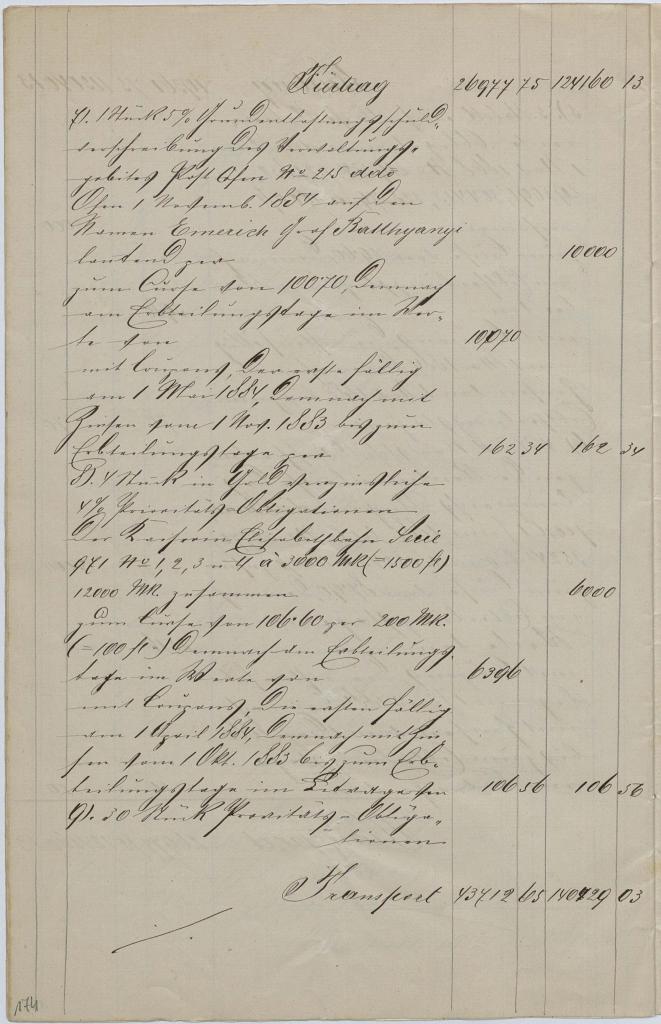 Fürtrag 26977 75 124160 13
7). 1 Stück 5% Grundentlastungsschuld-
verschreibung des Verwaltungs-
gebietes Post Ofen No 215 ddo
Ofen 1 Novemb. 1854 auf den
Namen Emerich Graf Batthyanyi
lautend per 10000
zum Curse von 100·70, demnach
am Erbteilungstage im Wer-
te von 10070
mit Coupons, der erste fällig
am 1 Mai 1884, demnach mit
Zinsen vom 1 Nov. 1883 bis zum
Erbteilungstage per 162 34 162 34
8). 4 Stück in Gold verzinsliche
4% Prioritäts-Obligationen
der Kaiserin Elisabethbahn Serie
971 No 1, 2, 3 u 4 à 3000 MK (=1500 fl)
12000 MK. zusammen 6000
zum Curse von 106·60 per 200 MK.
(=100 fl-) demnach am Erbteilungs-
tage im Werte von 6396
mit Coupons, die ersten fällig
am 1 April 1884, demnach mit Zin-
sen vom 1 Okt. 1883 bis zum Erb-
teilungstage im Betrage von 106 56 106 56
9). 30 Stück Prioritäts-Obliga-
tionen
Transport 43712 65 140429 03
174